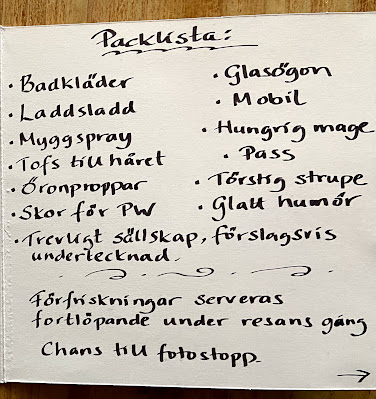 Packlista:
• Badkläder
• Laddsladd
• Myggspray
• Tofs till håret
• Öronproppar
• Skor för PW
• Glasögon
• Mobil
• Hungrig mage
• Pass
• Törstig strupe
• Glatt humör
• Trevligt sällskap, förslagsvis
undertecknad.
Förfriskningar serveras
fortlöpande under resans gång
Chans till fotostopp.